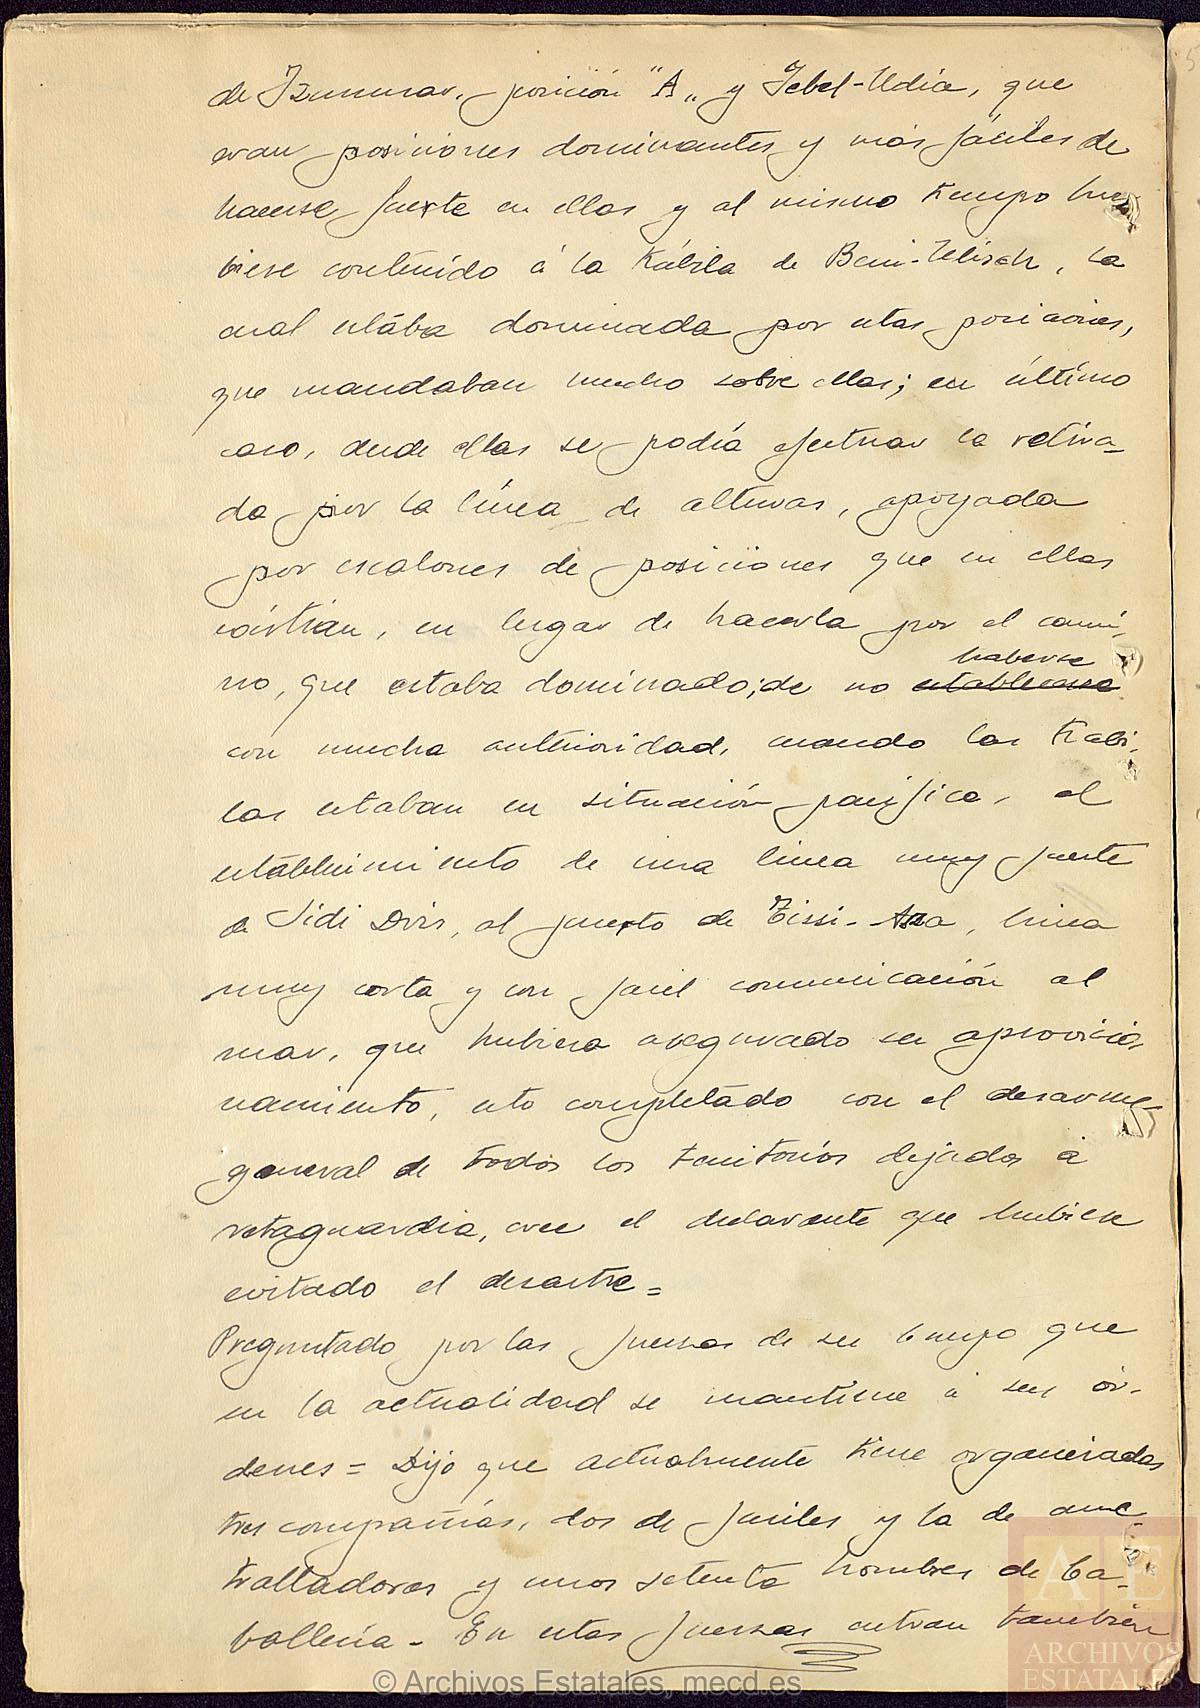 de Izummar, posición "A" y Yebel-Udia, que
eran posiciones dominantes y más fáciles de
hacerse fuerte en ellas y al mismo tiempo hu-
biese contenido á la Kábila de Beni-Ulisek, la
cual estába dominada por estas posiciones,
que mandaban mucho sobre ellas; en último
caso, desde ellas se podía efectuar la retira-
da por la línea de alturas, apoyada
por escalones de posiciones que en ellas
existían, en lugar de hacerla por el cami-
haberse
no, que estaba dominado; de no establecerse
con mucha anterioridad, cuando las Kabi-
las estaban en situación pacífica, el
establecimiento de una línea muy fuerte
de Sidi Dris, al puerto de Tissi-Assa, línea
muy corta y con fácil comunicación al
mar, que hubiera asegurado su aprovisio-
namiento, esto completado con el desarme
general de todos los territorios dejados á
retaguardia, cree el declarante que hubiese
evitado el desastre =
Preguntado por las fuerzas de su Cuerpo que
en la actualidad se mantiene á sus ór-
denes = Dijo que actualmente tiene organizadas
tres compañías, dos de fusiles y la de ame-
tralladoras y unos setenta hombres de Ca-
ballería - En estas fuerzas entran también
© Archivos Estatales, mecd.es
AE
ARCHIVOS
ESTATALES